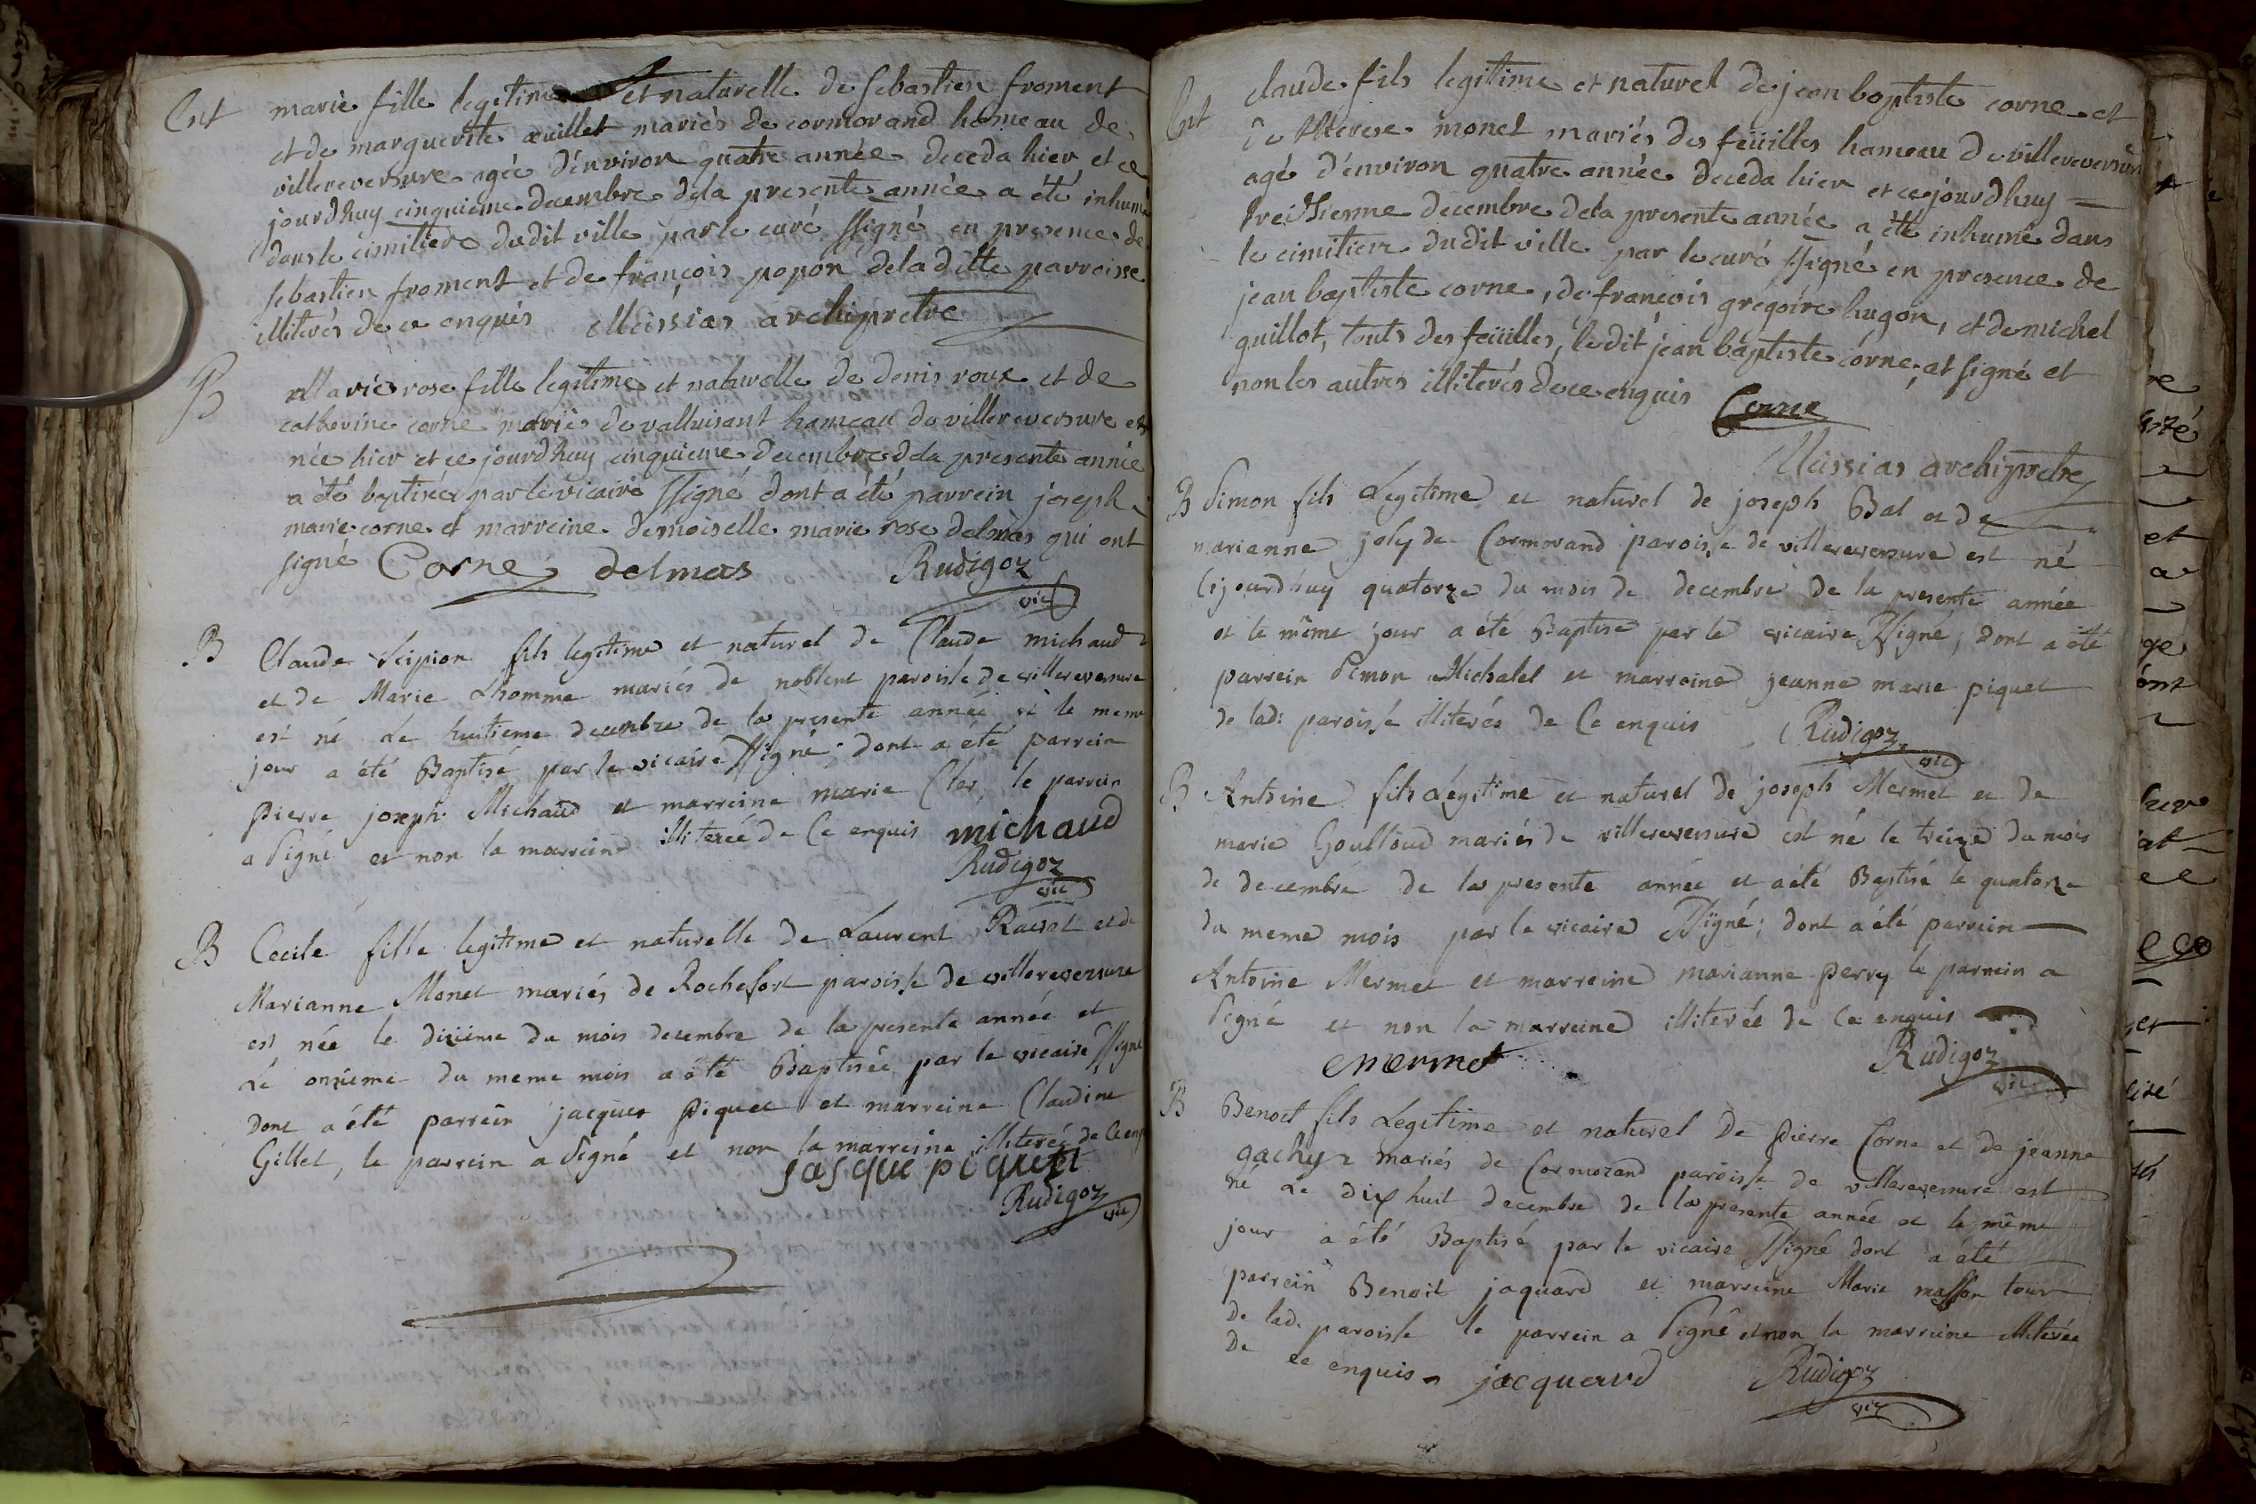 Ent marie fille legitime et naturelle de sebastien froment
et de marguerite œuillet mariés de cormorand hameau de
villereversure agée d'environ quatre année deceda hier et ce
jourd'huy cinquieme decembre dela presente année a été inhumé
dans le cimitiere dudit ville par le curé ssigné en presence de
sebastien froment et de françois popon de la ditte parroisse
illiterés de ce enquis Messias archipretre
B Marie rose fille legitime et naturelle de denis roux et de
catherine corne mariés de valluisant hameau de villereversure est
née hier et ce jourd'huy cinquieme decembre dela presente année
a été baptisée par le vicaire ssigné dont a été parrein joseph
marie corne et marreine demoiselle marie rose delmas qui ont
signé Corne delmas Rudigoz
vic
B Claude Scipion fils legitime et naturel de Claude michaud
et de Marie Lhomme mariés de noblent paroisse de villereversure
est né Le huitieme decembre de la presente année et le meme
jour a été Baptisé par le vicaire ssigné; dont a été parrein
pierre joseph Michaud et marreine marie Cler le parrein
a signé et non la marreine illiterée de Ce enquis michaud
Rudigoz
vic
B Cecile fille legitime et naturelle de Laurent Ravat et de
Marianne Monet mariés de Rochefort paroisse de villereversure
est née le dixieme du mois decembre de la presente année et
Le onzieme du meme mois a été Baptisée par le vicaire ssigné
dont a été parrein jacques piquet et marreine Claudine
Gillet, le parrein a signé et non la marreine illiterée de Ce enq
jasque piquet
Rudigoz
vic
Ent claude fils legitime et naturel de jean baptiste corne et
de therese monet mariés des feüilles hameau de villereversure
agé d'environ quatre année deceda hier et ce jourd'huy
treisieme decembre dela presente année a été inhumé dans
le cimitiere dudit ville par le curé ssigné en presence de
jean baptiste corne, de françois grégoire hugon, et de michel
guillot, touts des feüilles, ledit jean baptiste corne, at signé et
non les autres illiterés de ce enquis Corne
Messias archipretre
B Simon fils Legitime et naturel de joseph Bal et de
marianne joly de Cormorand paroisse de villereversure est né
Cejourd'huy quatorze du mois de decembre de la presente année
et le même jour a été Baptisé par le vicaire ssigné, dont a été
parrein Simon Michalet et marreine jeanne marie piquet
de lad: paroisse illiterés de Ce enquis Rudigoz
vic
B Antoine fils Legitime et naturel de joseph Mermet et de
marie Goulloud mariés de villereversure est né le treize du mois
de decembre de la presente année et a été Baptisé le quatorze
du meme mois par le vicaire ssigné; dont a été parrein
Antoine Mermet et marreine marianne perry le parrein a
signé et non la marreine illiterée de Ce enquis
mermet Rudigoz
vic
B Benoit fils Legitime et naturel de pierre Corne et de jeanne
gachy mariés de Cormorand paroisse de villereversure est
né Le dix huit decembre de la presente année et le même
jour a été Baptisé par le vicaire ssigné dont a été
parrein Benoit jaquard et marreine Marie masson tous
de lad: paroisse le parrein a signé et non la marreine illiterée
de ce enquis jacquard Rudigoz
vic